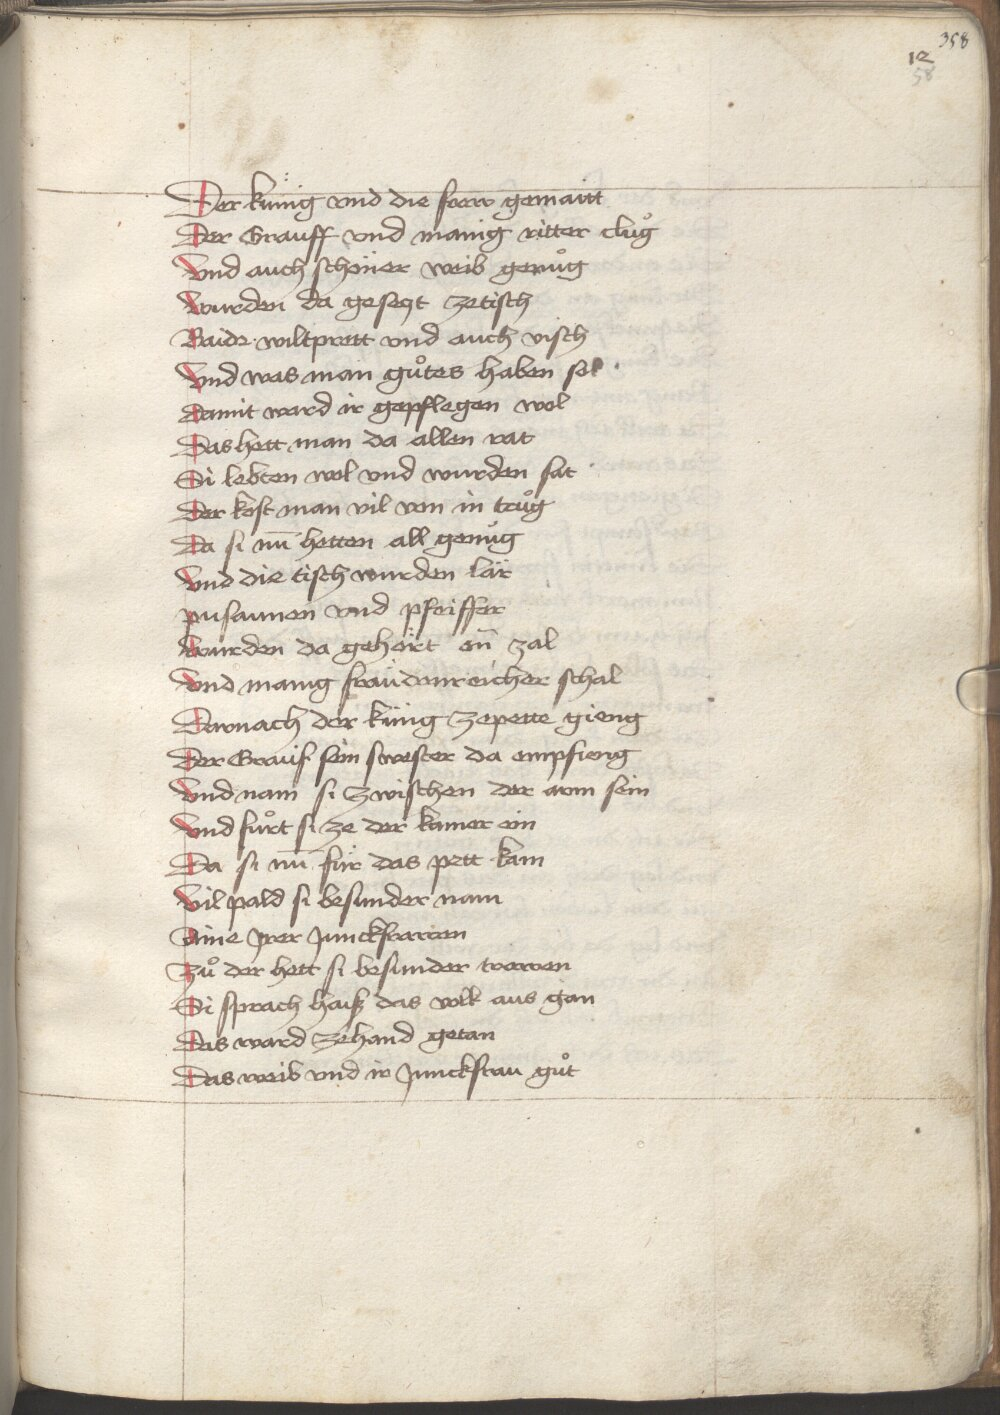 358
12
58
Der künig vnd die fraw gemaitt
Der Grauff vnd manig ritter clůg
Vnd auch schöner weib genůg
Wurden da geseczt zetisch
Baide wiltprett vnd auch visch
Vnd was man gůtes haben sol
Damit ward ir gepflegen wol
Das hett man da allen rat
Si lebten wol vnd wurden sat
Der kost man vil von in trůg
Da si nu̅ hetten all genůg
Vnd die tisch wurden lär
pusaunen vnd pfeiffer
Wurden da gehört on̅ zal
Vnd manig fräudenreicher schal
Darnach der künig zepette gieng
Der Grauf sein swester da empfieng
Vnd nam si zwischen der arm sein
Vnd fůrt si ze der kamer ein
Da si nu̅ für das pett kam
Vil pald si besunder nam
Aine jrer junckfrawen
Zů der hett si besunder trawen
Si sprach haiß das volk aus gan
Das ward zehand getan
Das weib vnd ir junckfrau gůt